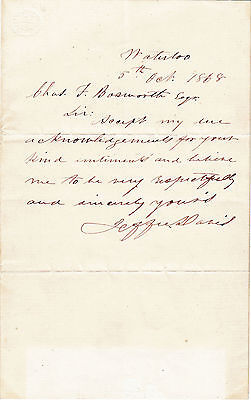 Waterloo
5th Oct. 1868
Chas. F. Bosworth Esqr.
Sir: Accept my due
acknowledgements for your
kind sentiments and believe
me to be very respectfully
and sincerely yours
Jeffn. Davis